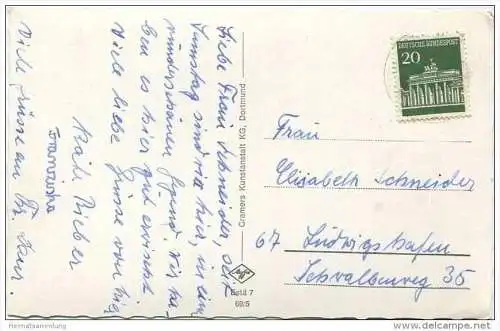 Liebe Frau Schneider, seit
Samstag sind wir hier, in einer
wunderschönen Gegend. Wir ha-
ben es hier gut erwischt
Viele liebe Grüsse von hier
Käti Bieber
Franziska
Viele Grüsse an Ihr Haus.
Cramers Kunstanstalt KG, Dortmund
Estd 7
69/5
DEUTSCHE BUNDESPOST
20
Frau
Elisabeth Schneider
67 Ludwigshafen
Schwalbenweg 35
Heimatsammlung
delcampe.net